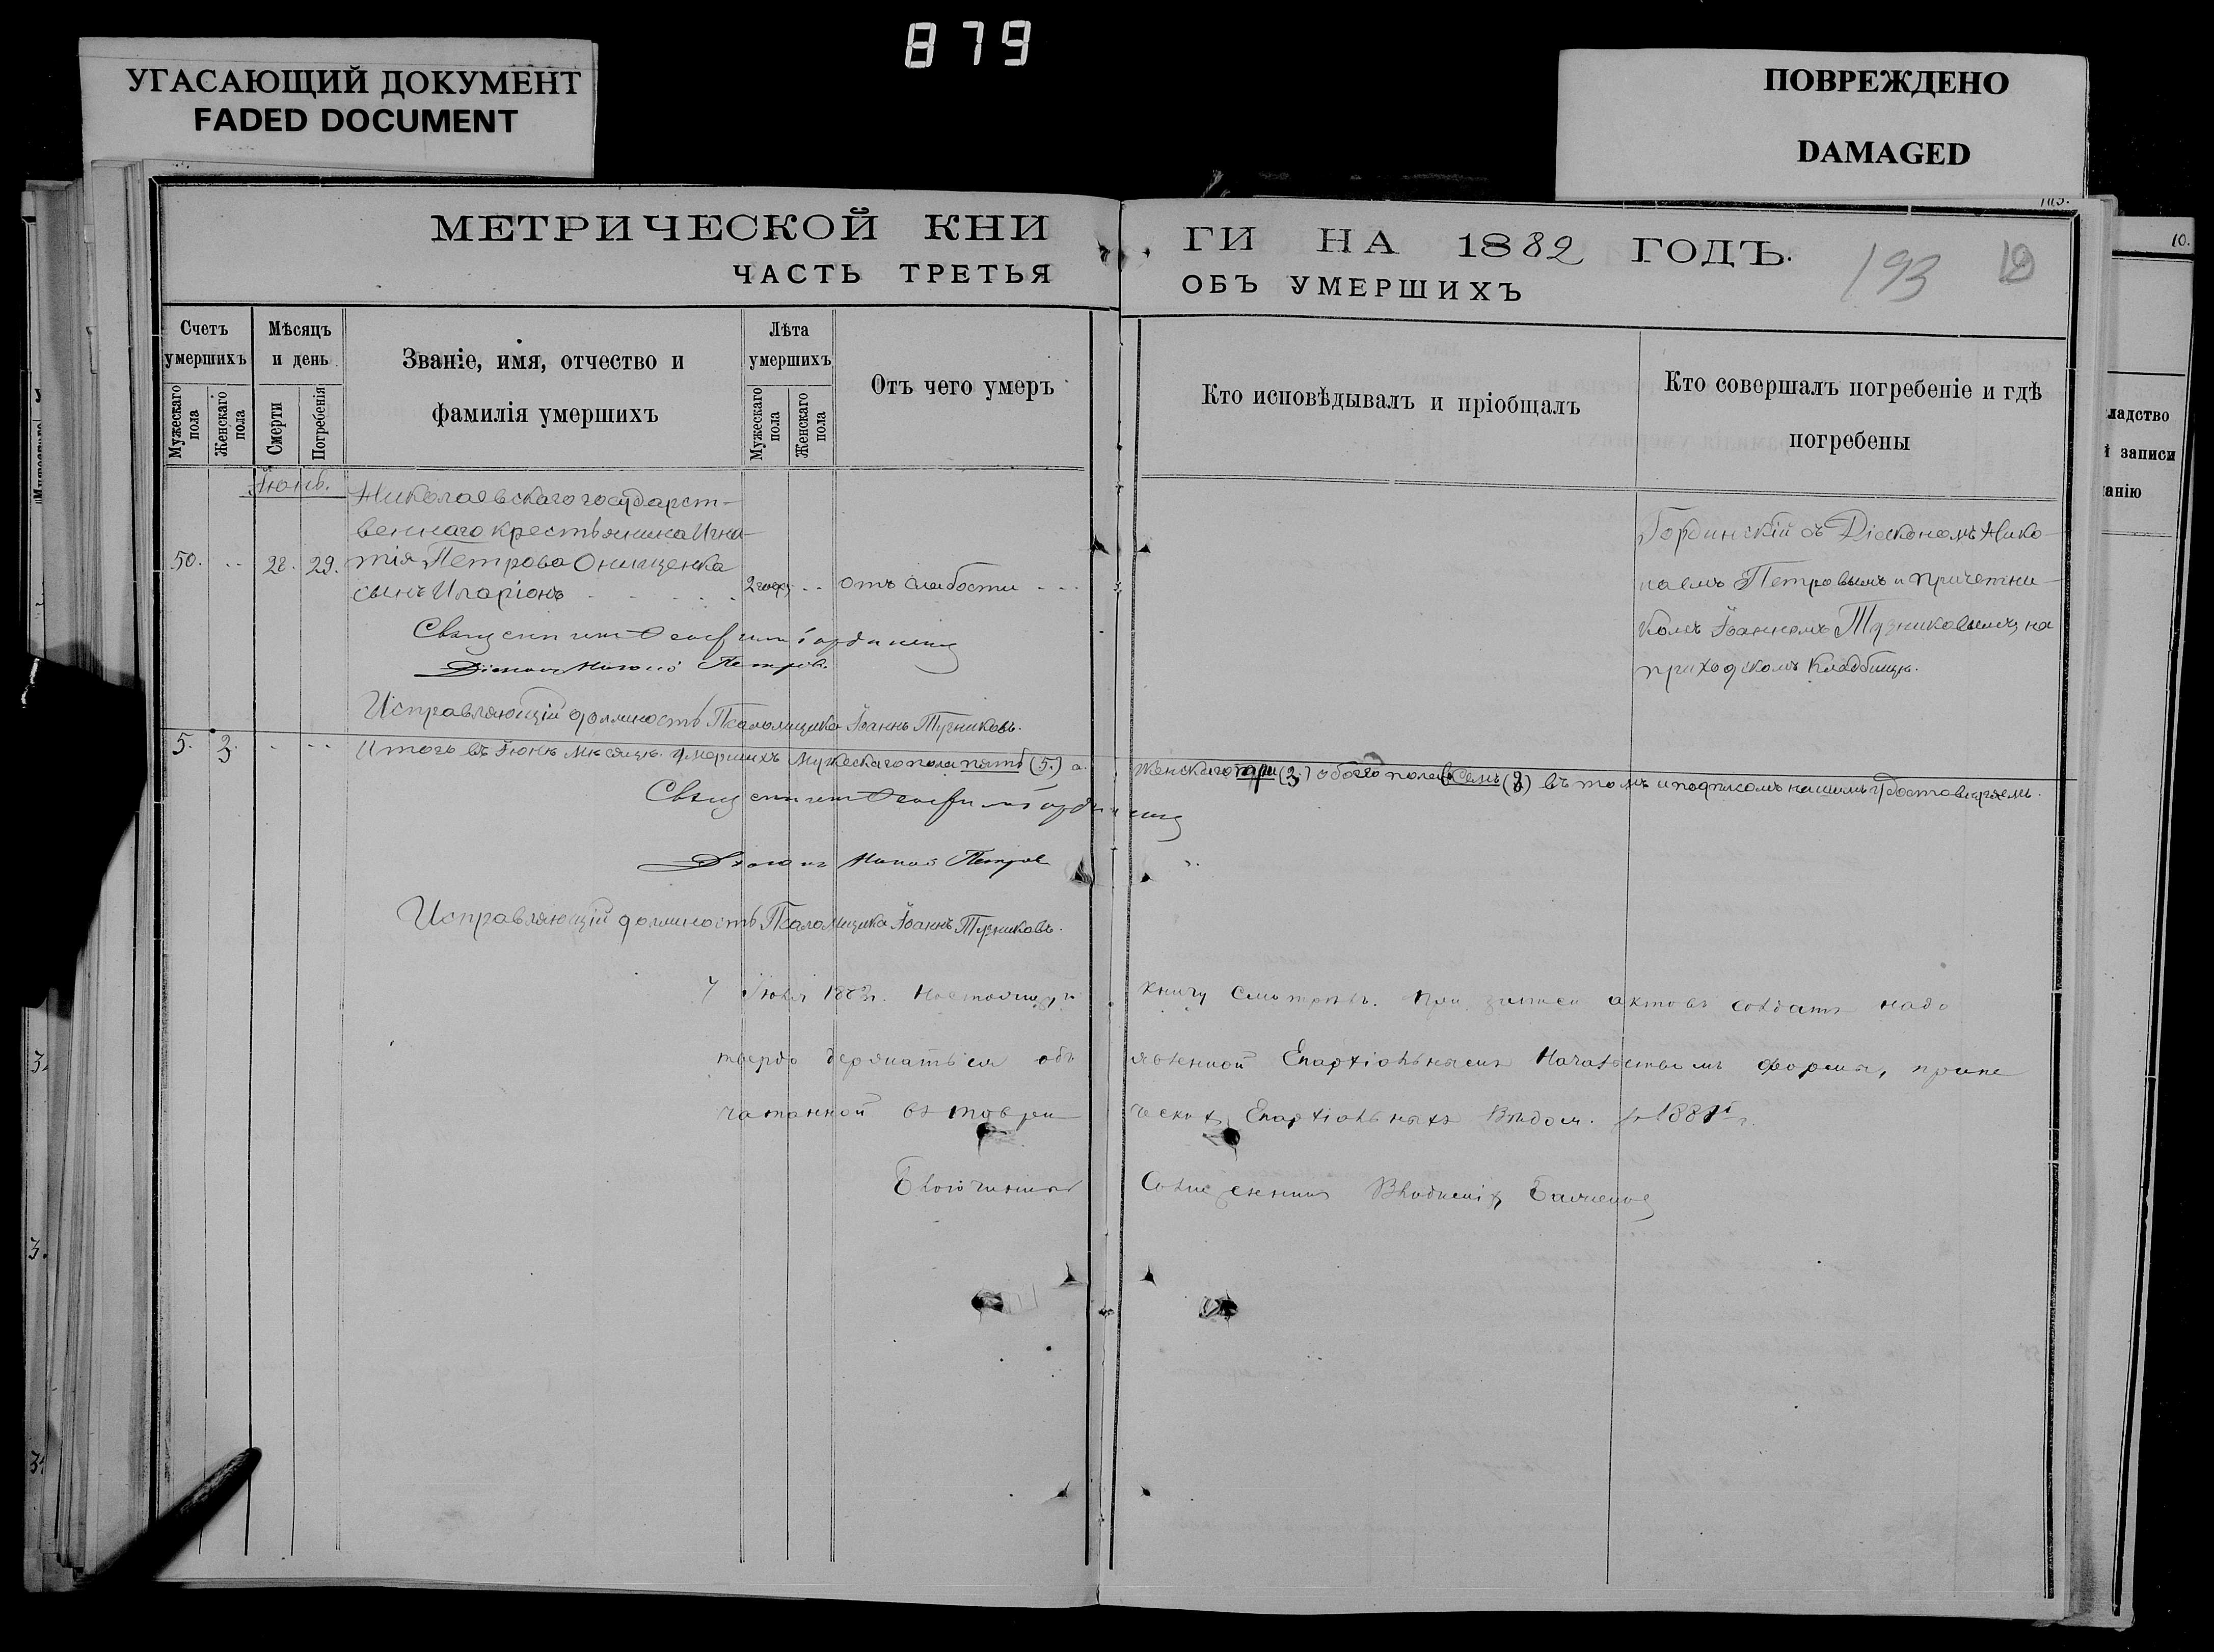 879
УГАСАЮЩИЙ ДОКУМЕНТ
FADED DOCUMENT
ПОВРЕЖДЕНО
DAMAGED
МЕТРИЧЕСКОЙ КНИ
ГИ НА 1882 ГОДЪ.
193
ЧАСТЬ ТРЕТЬЯ
ОБЪ УМЕРШИХЪ
10.
Счетъ умершихъ
Мужескаго пола
Женскаго пола
Мѣсяцъ и день
Смерти
Погребенія
Званіе, имя, отчество и
фамилія умершихъ
Лѣта умершихъ
Мужескаго пола
Женскаго пола
Отъ чего умеръ
Кто исповѣдывалъ и пріобщалъ
Кто совершалъ погребеніе и гдѣ
погребены
ладство
й записи
анію
Іюнь.
Николаевскаго государст-
веннаго крестьянина Игна-
50. 28. 29. тія Петрова Онищенка
сынъ Иларіонъ 2 отъ слабости
Гординскій съ Діакономъ Нико-
лаемъ Петровымъ и причетни-
комъ Іоанномъ Тузниковымъ, на
приходскомъ кладбищѣ.
Священникъ
Діаконъ Николай Петровъ
Исправляющій должность Псаломщика Іоаннъ Тузниковъ.
5. 3. Итого въ Іюнѣ мѣсяцѣ умершихъ Мужескаго пола пять (5.) а
Женскаго три (3.) обоего пола въ томъ и подписомъ нашимъ удостовѣряемъ.
Священникъ
Діаконъ Николай Петровъ
Исправляющій должность Псаломщика Іоаннъ Тузниковъ.
7 Іюля 1882 г. Настоящую
книгу смотрѣлъ. При записи актовъ надо
твердо держаться объ
явленной Епархіальнымъ Начальствомъ формы, припе
чатанной въ Таври
ческихъ Епархіальныхъ Вѣдом.
Благочинный
Священникъ